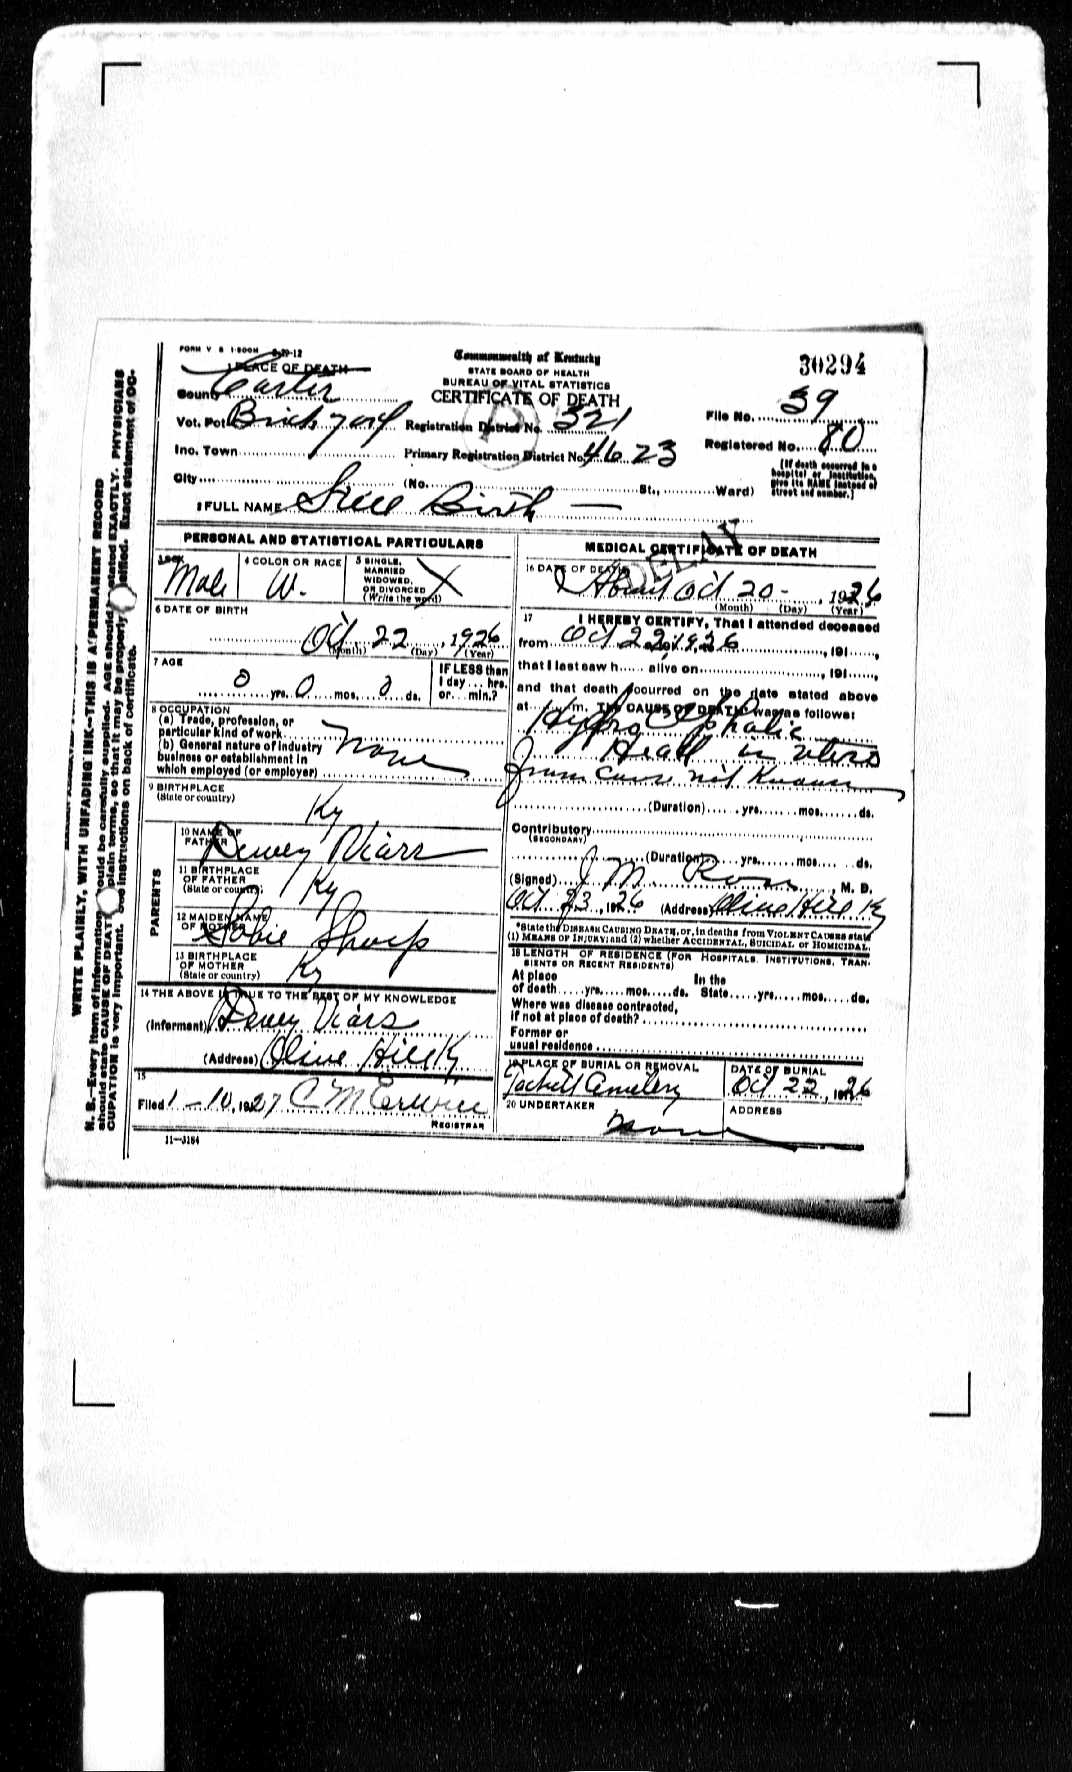 FORM V S 1-500M 8-29-12
1 PLACE OF DEATH
Commonwealth of Kentucky
STATE BOARD OF HEALTH
BUREAU OF VITAL STATISTICS
CERTIFICATE OF DEATH
30294
County Carter
File No. 39
Vot. Pct. Brickyard Registration District No. 321
Registered No. 80
Inc. Town Primary Registration District No. 4623
[If death occurred in a hospital or institution, give its NAME instead of street and number.]
City (No. St., Ward)
2 FULL NAME Still Birth
PERSONAL AND STATISTICAL PARTICULARS
3 SEX Male
4 COLOR OR RACE W.
5 SINGLE, MARRIED WIDOWED, OR DIVORCED (Write the word) X
6 DATE OF BIRTH
Oct 22, 1926
(Month) (Day) (Year)
7 AGE
0 yrs. 0 mos. 0 ds.
IF LESS than 1 day... hrs. or... min.?
8 OCCUPATION
(a) Trade, profession, or particular kind of work
(b) General nature of industry business or establishment in which employed (or employer)
None
9 BIRTHPLACE
(State or country)
Ky
PARENTS
10 NAME OF FATHER Dewey Viars
11 BIRTHPLACE OF FATHER (State or country) Ky
12 MAIDEN NAME OF MOTHER Sharp
13 BIRTHPLACE OF MOTHER (State or country) Ky
14 THE ABOVE IS TRUE TO THE BEST OF MY KNOWLEDGE
(Informant) Dewey Viars
(Address) Olive Hill Ky
15
Filed 1-10, 1927 C M Erwin
REGISTRAR
11-3184
MEDICAL CERTIFICATE OF DEATH
DELAY
16 DATE OF DEATH
About Oct 20-, 1926
(Month) (Day) (Year)
17 I HEREBY CERTIFY, That I attended deceased
from Oct 22, 1926, 191
that I last saw h alive on, 191
and that death occurred on the date stated above
at m. The CAUSE OF DEATH* was as follows:
Hydro Cephalic
Head in utero
from cause not known
(Duration) yrs. mos. ds.
Contributory
(SECONDARY)
(Duration) yrs. mos. ds.
(Signed) J. M. Rose, M. D.
Oct 23, 1926 (Address) Olive Hill Ky
*State the DISEASE CAUSING DEATH, or, in deaths from VIOLENT CAUSES state
(1) MEANS OF INJURY; and (2) whether ACCIDENTAL, SUICIDAL or HOMICIDAL.
18 LENGTH OF RESIDENCE (FOR HOSPITALS, INSTITUTIONS, TRANSIENTS OR RECENT RESIDENTS)
At place of death yrs. mos. ds. In the State yrs. mos. ds.
Where was disease contracted,
if not at place of death?
Former or
usual residence
19 PLACE OF BURIAL OR REMOVAL
Tackett Cemetery
DATE OF BURIAL
Oct 22, 1926
20 UNDERTAKER
None
ADDRESS
WRITE PLAINLY, WITH UNFADING INK—THIS IS A PERMANENT RECORD
N. B.—Every item of information should be carefully supplied. AGE should be stated EXACTLY. PHYSICIANS
should state CAUSE OF DEATH in plain terms, so that it may be properly classified. Exact statement of OC-
CUPATION is very important. See instructions on back of certificate.